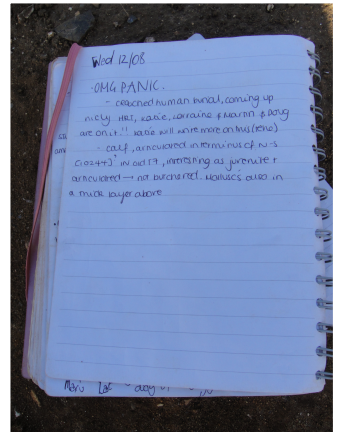 Wed 12/08
OMG PANIC.
- crouched human burial, coming up
nicely. HRJ, Katie, Lorraine & Martin & Doug
are on it!! Katie will write more on this (echo)
- calf, articulated in terminus of N-S
in old 17, interesting as juvenile +
articulated → not butchered. Molluscs also in
a thick layer above